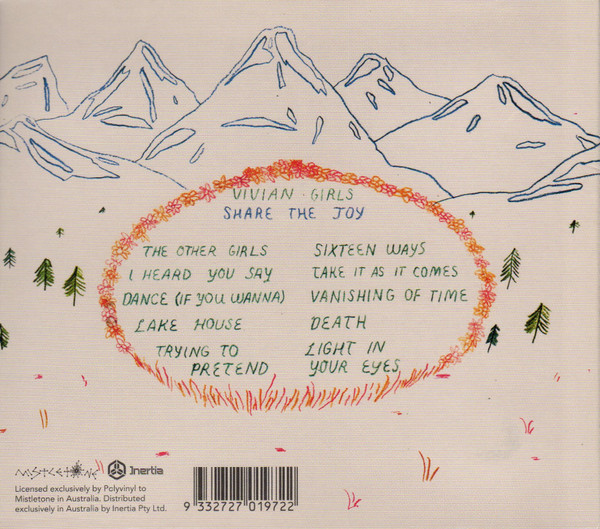 VIVIAN · GIRLS
SHARE THE JOY
THE OTHER GIRLS
I HEARD YOU SAY
DANCE (IF YOU WANNA)
LAKE HOUSE
TRYING TO
PRETEND
SIXTEEN WAYS
TAKE IT AS IT COMES
VANISHING OF TIME
DEATH
LIGHT IN
YOUR EYES
MISTLETONE
Inertia
Licensed exclusively by Polyvinyl to
Mistletone in Australia. Distributed
exclusively in Australia by Inertia Pty Ltd.
9 332727 019722